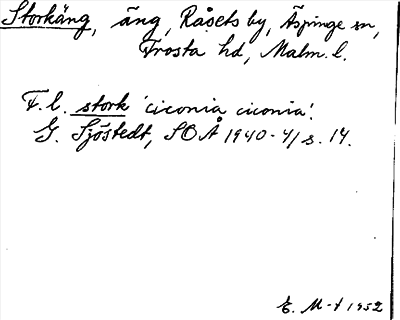 Storkäng, äng, Råsets by, Äspinge sn,
Frosta hd, Malm. l.
F. l. stork 'ciconia ciconia'.
G. Sjöstedt, SOÅ 1940-41 s. 14.
E. M-t 1952